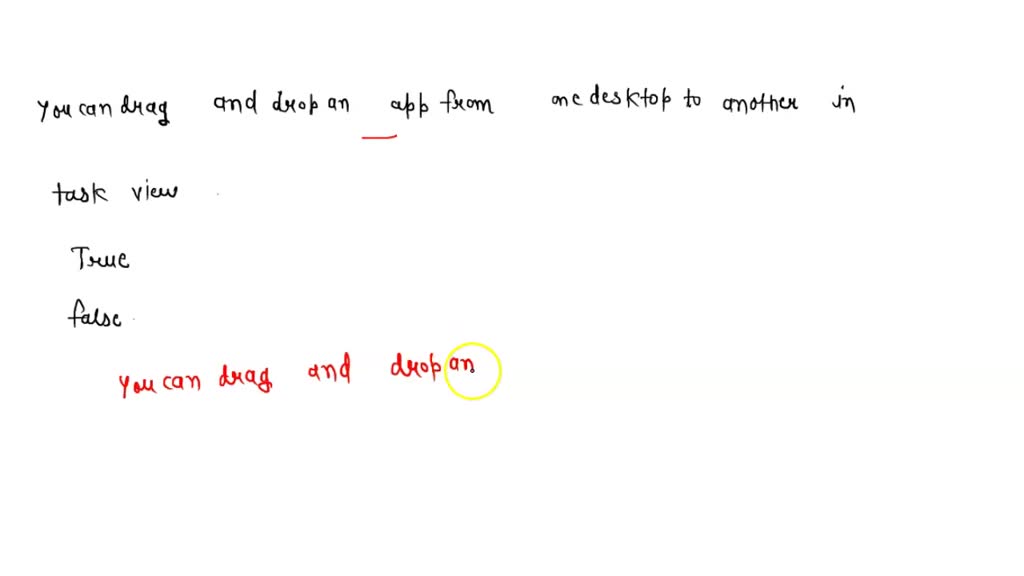 You can drag and drop an app from one desktop to another in
task view
True
false
You can drag and drop an